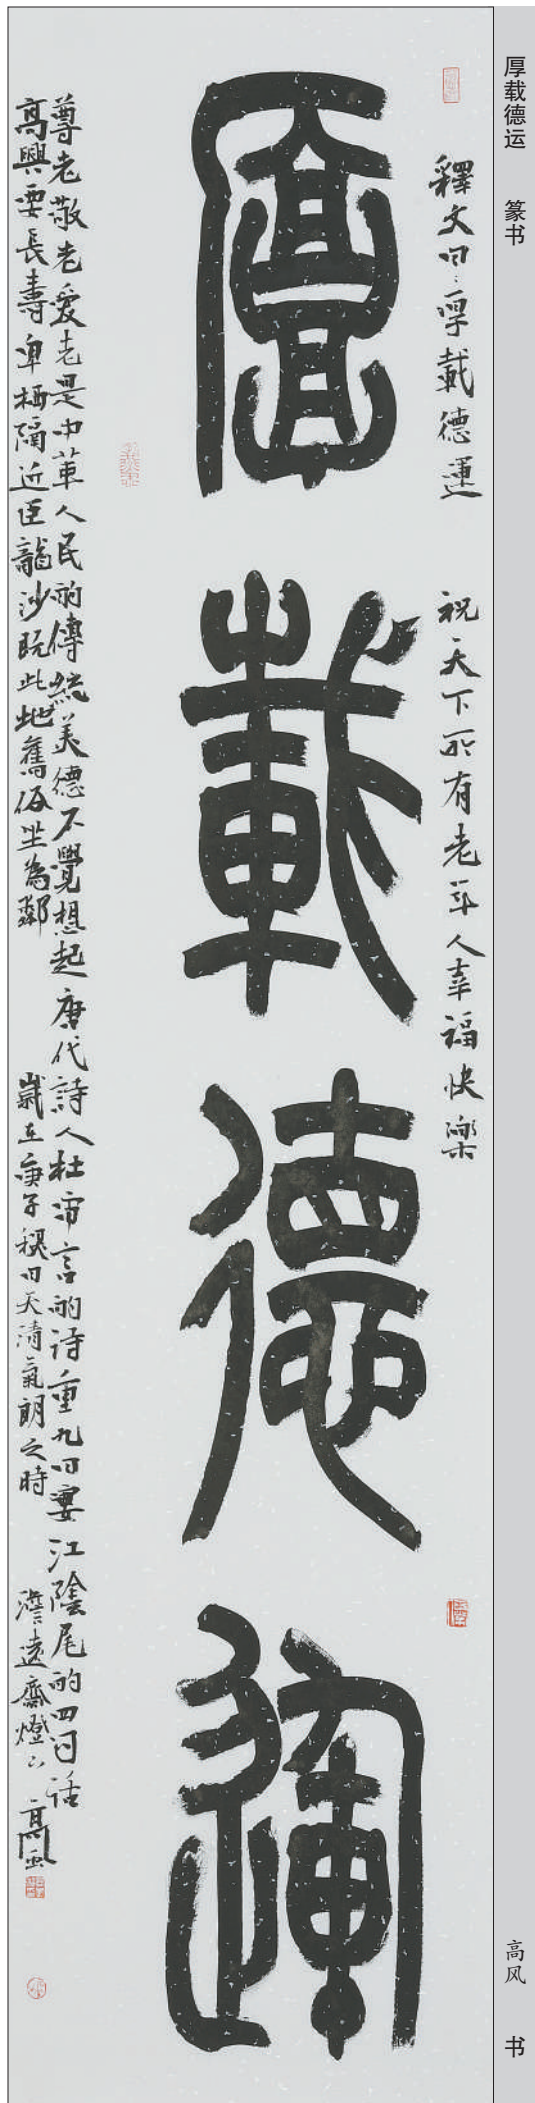 厚载德运 篆书
高风 书
釋文曰：厚載德運 祝天下所有老年人幸福快樂
厚載德運
尊老敬老爱老是中華人民的傳統美德不覺想起唐代詩人杜審言的诗重九日宴江陰尾的四句话
高興要長壽卑栖隔近臣龍沙即此地舊俗坐為鄰 歲在庚子秋日天清氣朗之時 澹遠齋燈下 高風